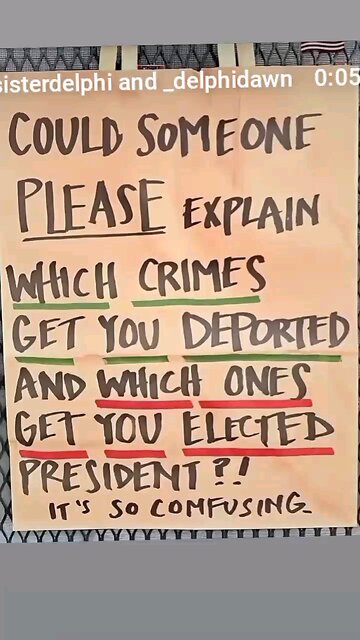 sisterdelphi and _delphidawn 0:05
COULD SOMEONE
PLEASE EXPLAIN
WHICH CRIMES
GET YOU DEPORTED
AND WHICH ONES
GET YOU ELECTED
PRESIDENT?!
IT'S SO COMFUSING